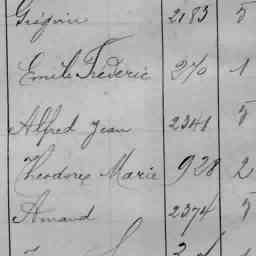 Grégoire 2183 5
Emile Frederic 270 1
Alfred Jean 2341 5
Theodore Marie 928 2
Amand 2374 5